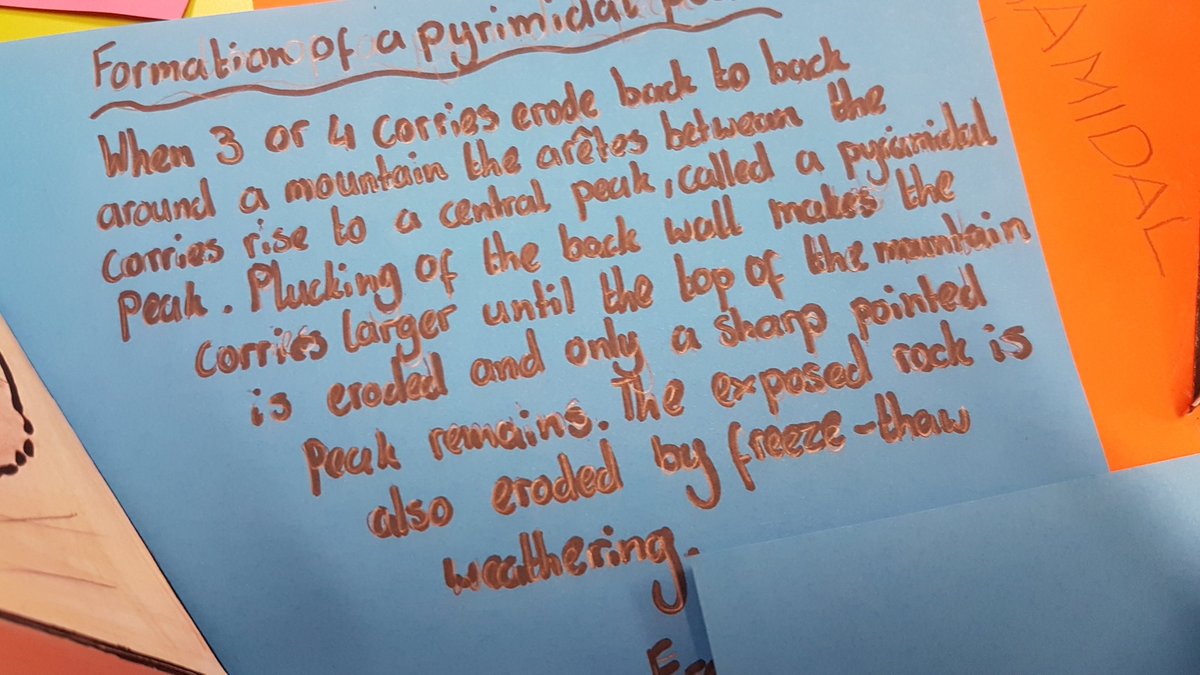 Formation of a pyrimidal
When 3 or 4 corries erode back to back
around a mountain the arêtes between the
corries rise to a central peak, called a pyramidal
peak. Plucking of the back wall makes the
corries larger until the top of the mountain
is eroded and only a sharp pointed
peak remains. The exposed rock is
also eroded by freeze-thaw
weathering.
AMIDAL